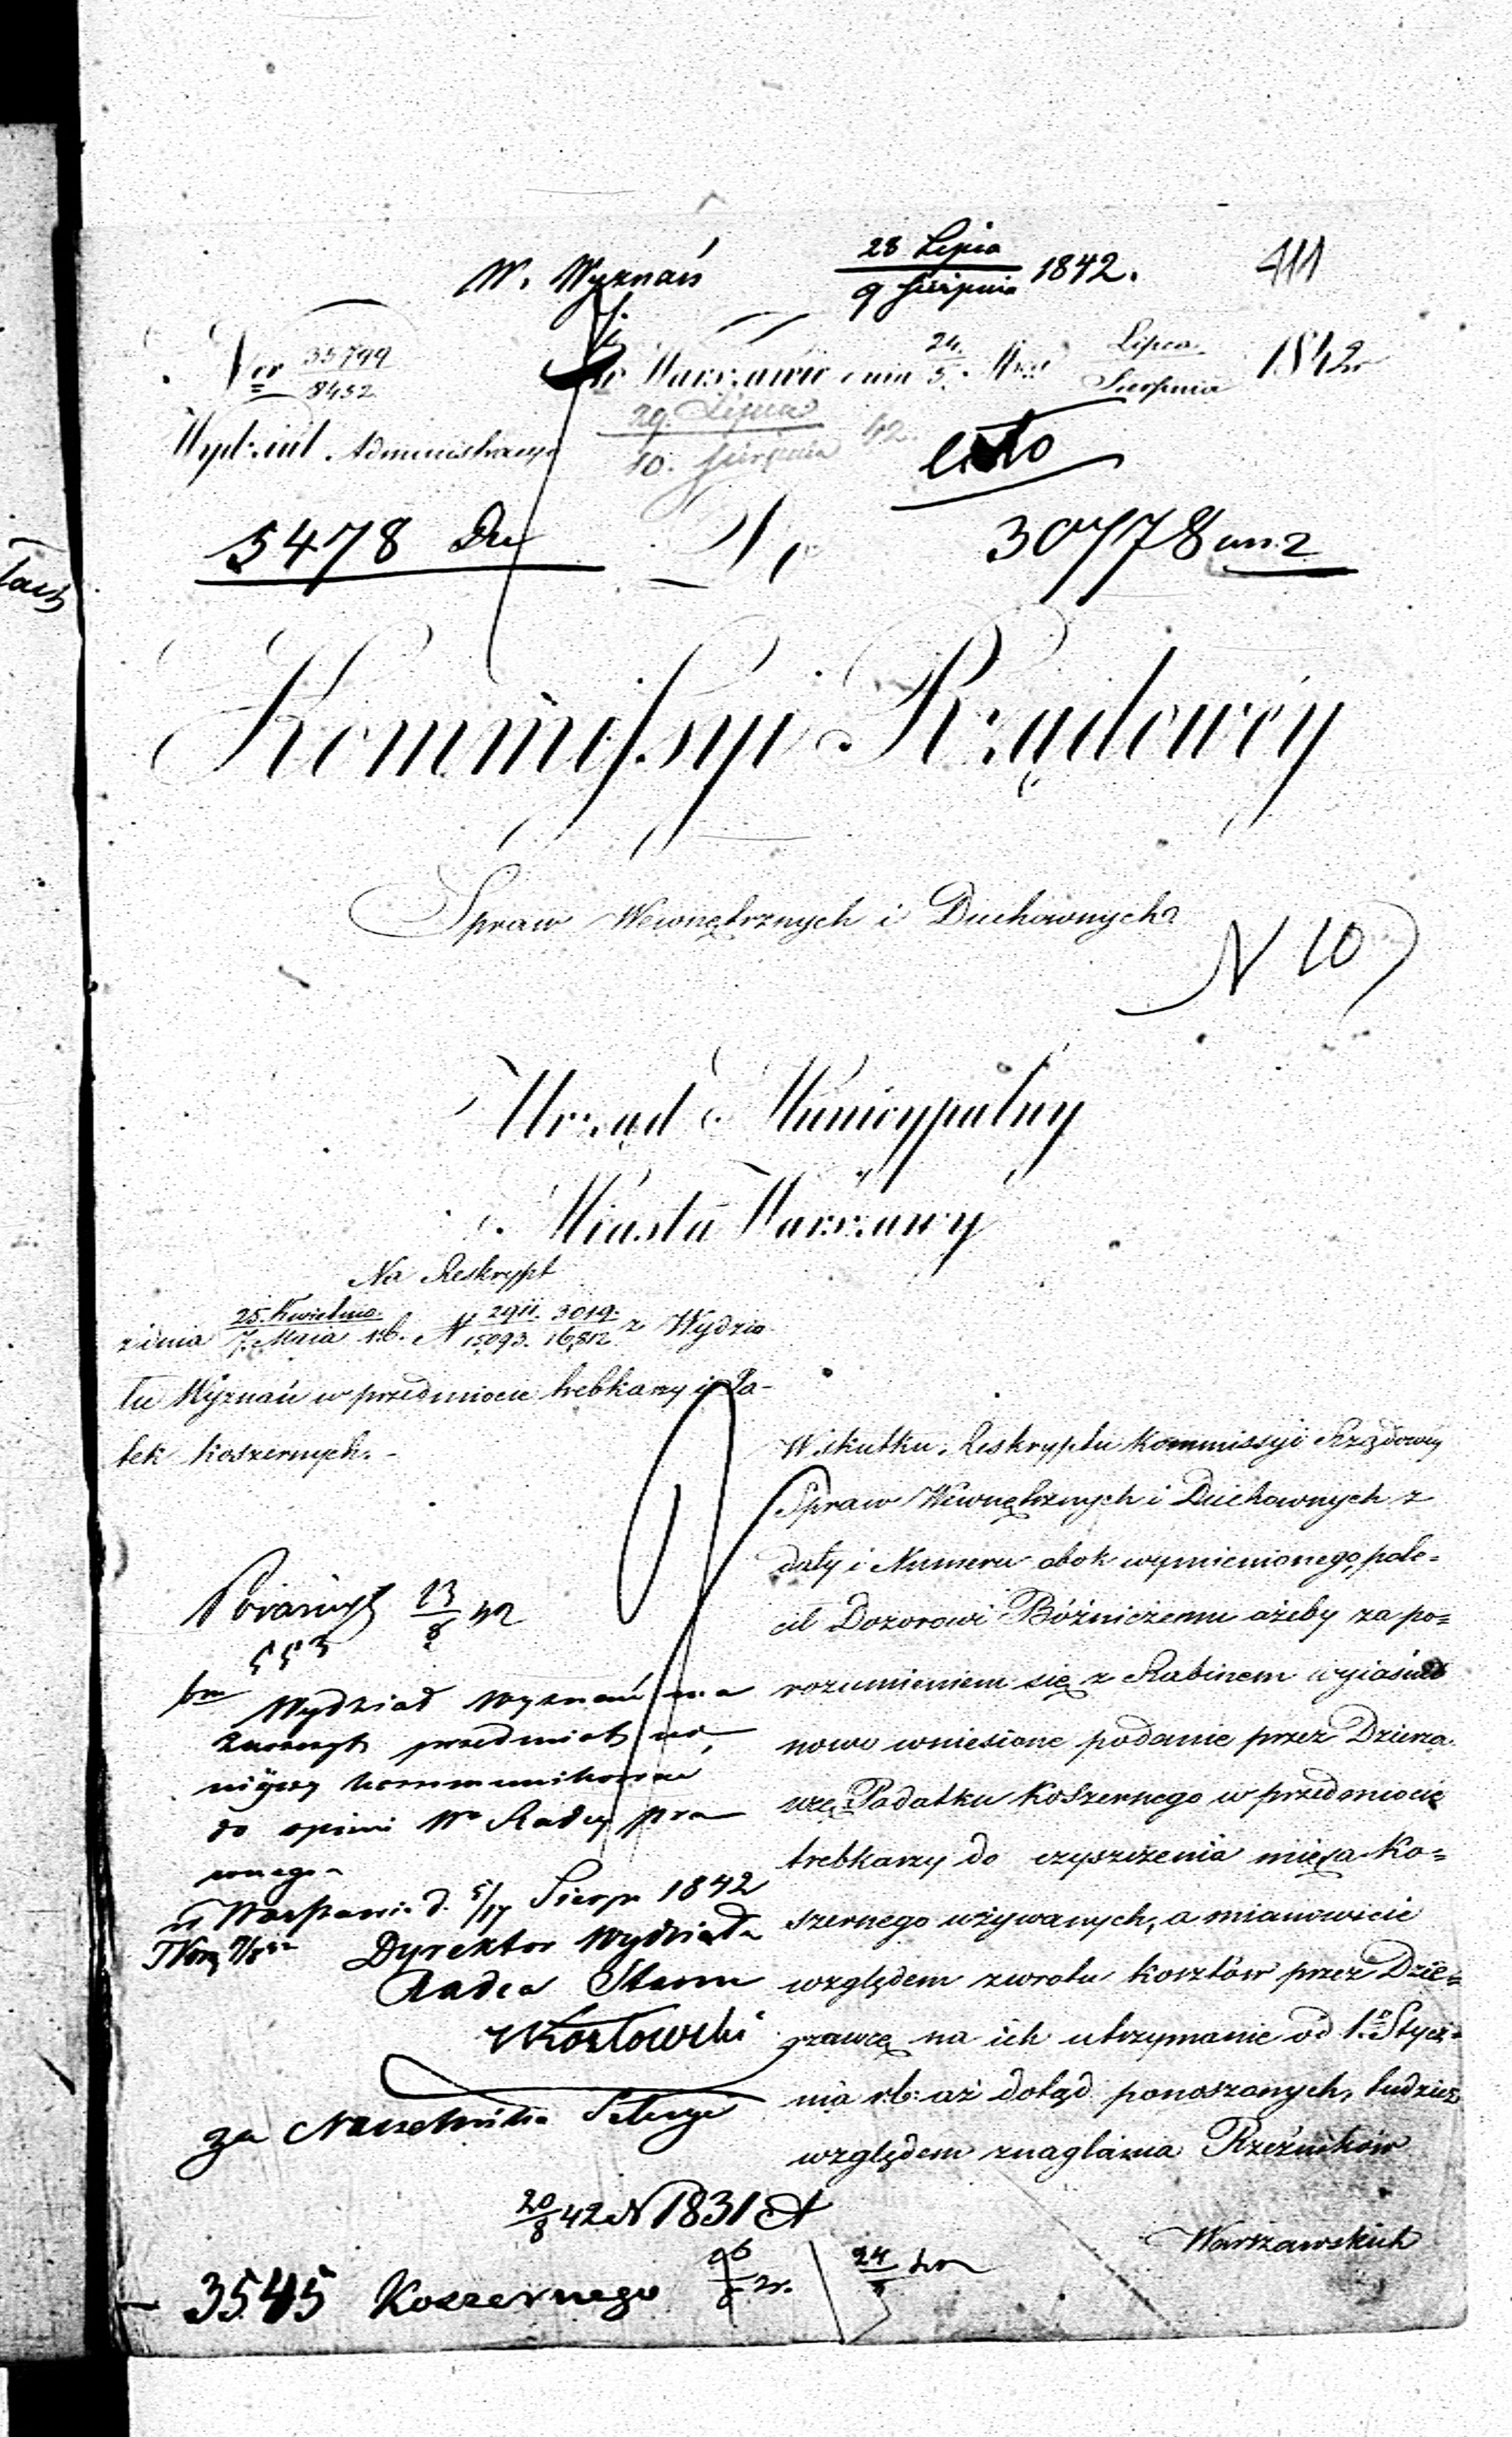 W. Wyznań 28 Lipca / 9 Sierpnia 1842. 411
Ner 35799 / 8452 w Warszawie dnia 24 / 5 Mca Lipca / Sierpnia 1842 r
Wydział Administracyi 29. Lipca / 10. Sierpnia 42. cito
5478 Du D. 30778 an. 2
Kommissyi Rządowéy
Spraw Wewnętrznych i Duchownych
N 10
Urząd Municypalny
Miasta Warszawy
Na Reskrypt
z dnia 25. Kwietnia / 7. Maia r.b. N 2911. 3019. / 15093. 16,812 z Wydzia
łu Wyznań w przedmiocie trebkarzy i Ja-
tek koszernych.-
W skutku Reskryptu Kommissyi Rządowéy
Spraw Wewnętrznych i Duchownych z
daty i Numeru obok wymienionego, pole=
cił Dozorowi Bóżniczemu ażeby za po=
rozumieniem się z Rabinem wyiaśnił
nowo wniesione podanie przez Dzierża
wcę Podatku Koszernego w przedmiocie
trebkarzy do czyszczenia mięsa Ko=
szernego używanych, a mianowicie
względem zwrotu kosztów przez Dzie=
rzawcę na ich utrzymanie od 1.º Stycz=
nia r.b: aż dotąd ponoszonych, tudzież
względem znaglania Rzeźników
Warszawskich
13 / 8 42
553
Wydział Wyznań ma
zaszczyt przedmiot ni
nieyszy kommunikować
do opinii Wo Radcy Pra
wnego
w Warszawie d. 5/17 Sierp 1842
Dyrektor Wydziału
Radca Stanu
Kozłowski
za Naczelnika Sekcyi
20 / 8 42 N 1831 A
3545 Koszernego 24 / 8